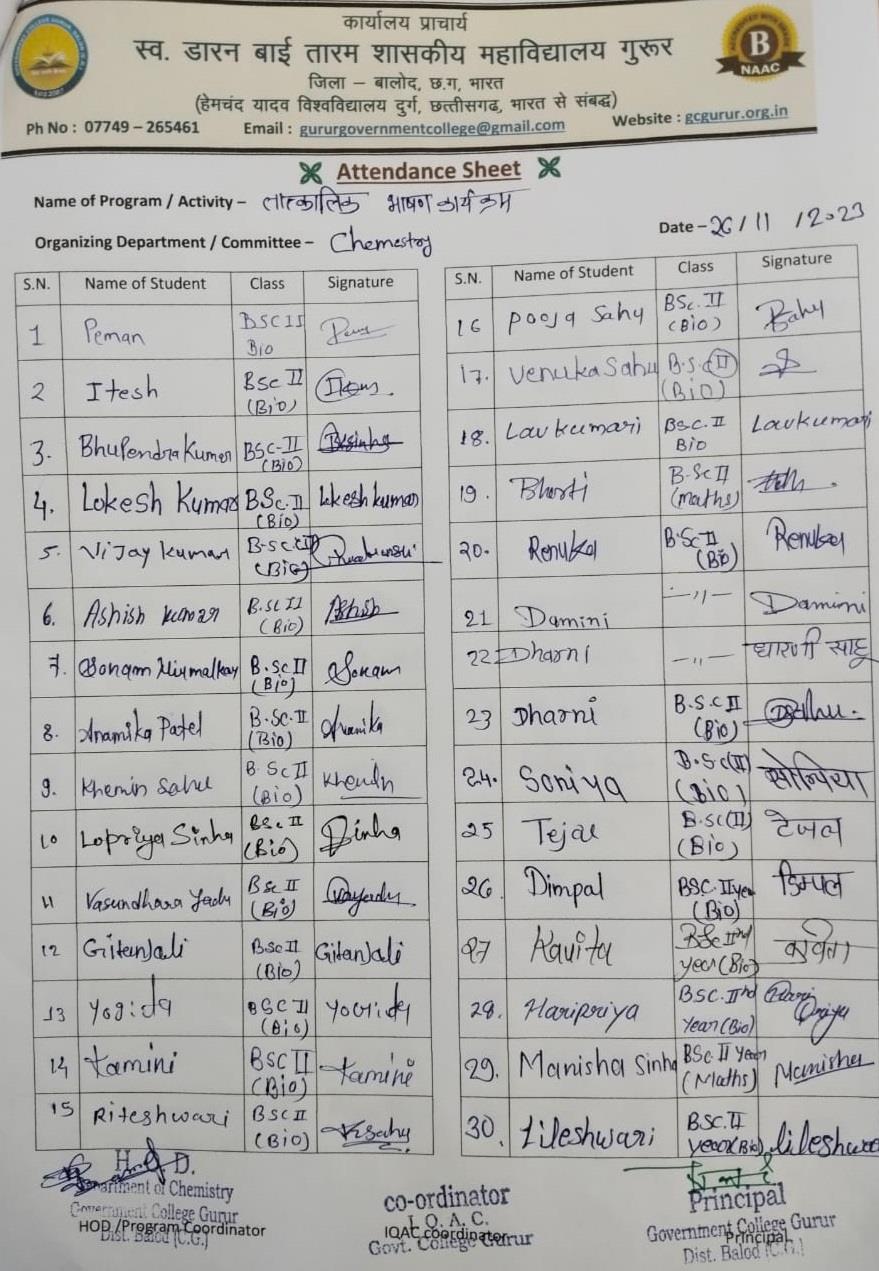 कार्यालय प्राचार्य
स्व. डारन बाई तारम शासकीय महाविद्यालय गुरूर
जिला – बालोद, छ.ग, भारत
(हेमचंद यादव विश्वविद्यालय दुर्ग, छत्तीसगढ, भारत से संबद्ध)
Ph No : 07749 – 265461 Email : gururgovernmentcollege@gmail.com Website : gcgurur.org.in
B
NAAC
Attendance Sheet
Name of Program / Activity – तात्कालिक भाषण कार्यक्रम
Date – 26/11/2023
Organizing Department / Committee – Chemestry
S.N. Name of Student Class Signature
1 Peman BSC II Bio
2 Itesh BSC II (Bio)
3. Bhupendra Kumar BSC-II (Bio)
4. Lokesh Kumar BSc. II (Bio) Lokesh kumar
5. Vijay kumar B.sc II (BiO)
6. Ashish kumar B.sc II (Bio) Ashish
7. Sonam Nirmalkar B.Sc II (Bio) Sonam
8. Anamika Patel B.Sc. II (Bio) Anamika
9. Khemin Sahu B.Sc II (Bio) Khemin
10 Lopriya Sinha BSc II (Bio) Sinha
11 Vasundhara Yadu BSc II (Bio)
12 Gitanjali BSc II (Bio) Gitanjali
13 Yogida BSC II (Bio) Yogida
14 Kamini BSC II (Bio) Kamini
15 Riteshwari BSC II (BiO)
S.N. Name of Student Class Signature
16 Pooja Sahy BSc. II (Bio)
17. Venuka Sahu B.S.C II (BiO)
18. Lavkumari BSC. II Bio Lavkumari
19. Bharti B.Sc II (maths)
20. Renuka B.Sc II (Bio) Renuka
21 Damini –,,– Damini
22 Dharni –,,– धारणी साहू
23 Dharni B.S.C II (Bio)
24. Soniya B.Sc(II) (Bio) सोनिया
25 Tejal B.SC(II) (Bio) टेजल
26 Dimpal BSC. II year (Bio) डिम्पल
27 Kavita BSc IInd year (Bio) कविता
28. Haripriya BSC. IInd Year (Bio) Hari Priya
29. Manisha Sinha BSC II year (Maths) Manisha
30. Lileshwari BSC. II year (Bio) Lileshwari
H.O.D.
Department of Chemistry
Government College Gurur
HOD /Program Coordinator
Dist. Balod (C.G.)
co-ordinator
I. Q. A. C.
IQAC coordinator
Govt. College Gurur
Principal
Government College Gurur
Principal
Dist. Balod (C.G.)